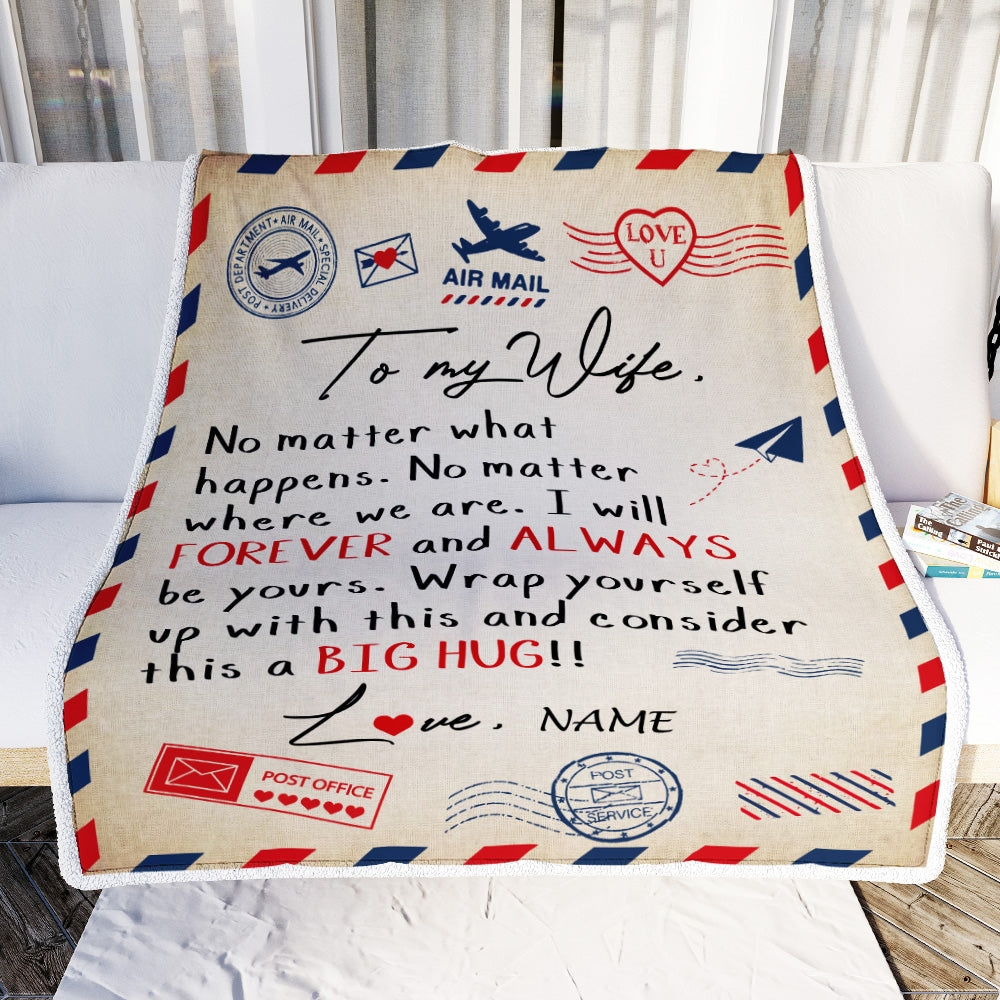 POST DEPARTMENT ★ AIR MAIL ★ SPECIAL DELIVERY ★
AIR MAIL
LOVE
U
To my Wife,
No matter what
happens. No matter
where we are. I will
FOREVER and ALWAYS
be yours. Wrap yourself
up with this and consider
this a BIG HUG!!
L❤ve, NAME
POST OFFICE
POST
SERVICE
The
Calling